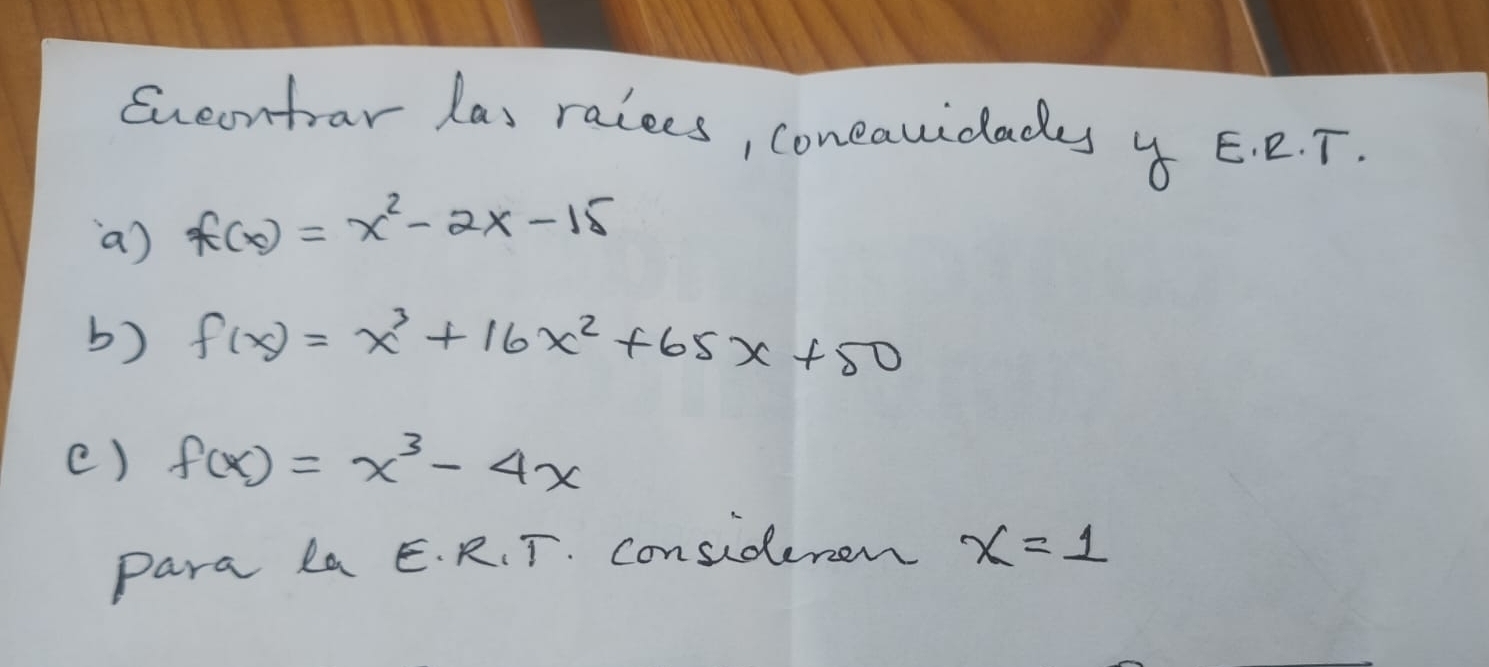 Encontrar las raíces, concavidades y E.R.T.
a) f(x) = x² - 2x - 15
b) f(x) = x³ + 16x² + 65x + 50
c) f(x) = x³ - 4x
para la E.R.T. consideren x = 1